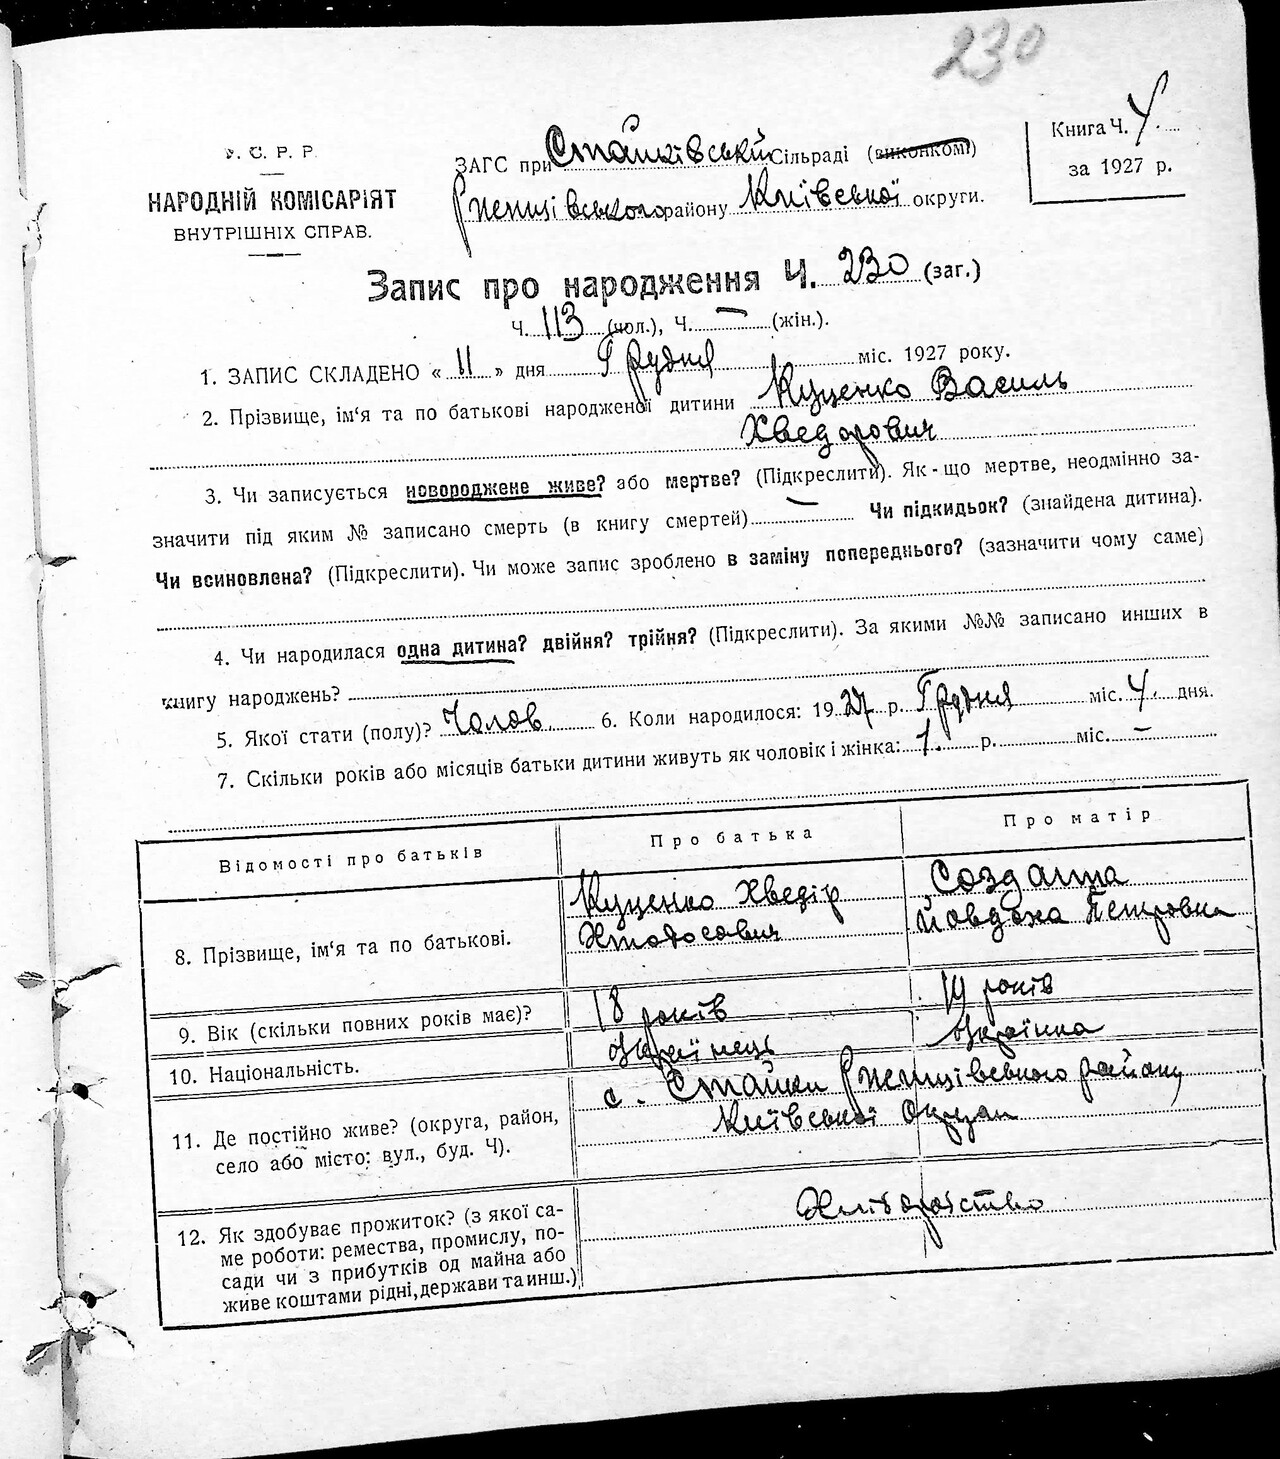 230
У. С. Р. Р.
НАРОДНІЙ КОМІСАРІЯТ
ВНУТРІШНІХ СПРАВ.
ЗАГС при Стайківській Сільраді (виконкомі)
Ржищівського району Київської округи.
Книга Ч. 4.
за 1927 р.
Запис про народження Ч. 230 (заг.)
Ч. 113 (чол.), Ч. — (жін.).
1. ЗАПИС СКЛАДЕНО « 11 » дня Грудня міс. 1927 року.
2. Прізвище, ім‘я та по батькові народженої дитини Куценко Василь
Хведорович
3. Чи записується новороджене живе? або мертве? (Підкреслити). Як-що мертве, неодмінно за-
значити під яким № записано смерть (в книгу смертей) — Чи підкидьок? (знайдена дитина).
Чи всиновлена? (Підкреслити). Чи може запис зроблено в заміну попереднього? (зазначити чому саме)
4. Чи народилася одна дитина? двійня? трійня? (Підкреслити). За якими №№ записано инших в
книгу народжень?
5. Якої стати (полу)? Чолов. 6. Коли народилося: 1927 р. Грудня міс. 4. дня.
7. Скільки років або місяців батьки дитини живуть як чоловік і жінка: 1. р. міс. —
Відомості про батьків
Про батька
Про матір
8. Прізвище, ім‘я та по батькові.
Куценко Хведір
Созданта
Йовдоха Петровна
9. Вік (скільки повних років має)?
18 років
19 років
10. Національність.
Українець
Українка
11. Де постійно живе? (округа, район,
село або місто: вул., буд. Ч).
с. Стайки Ржищівського району
Київської Округи
12. Як здобуває прожиток? (з якої са-
ме роботи: ремества, промислу, по-
сади чи з прибутків од майна або
живе коштами рідні, держави та инш.)
Хліборобство